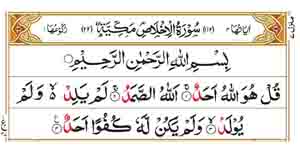 اٰيَاتُهَا ٤ (١١٢) سُوْرَةُ الْاِخْلَاصِ مَكِّيَّةٌ (٢٢) رُكُوْعُهَا ١
بِسْمِ اللهِ الرَّحْمٰنِ الرَّحِيْمِ
قُلْ هُوَ اللهُ اَحَدٌ ۚ اَللهُ الصَّمَدُ ۚ لَمْ يَلِدْ ۙ وَلَمْ
يُوْلَدْ ۙ وَلَمْ يَكُنْ لَّهٗ كُفُوًا اَحَدٌ